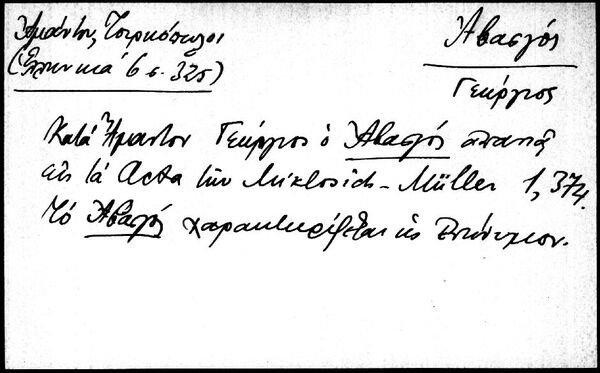 Ἀμάντου, Τουρκόπωλοι
(Ἑλληνικά 6 σ. 325)
Ἀβασγός
Γεώργιος
Κατά Ἄμαντον Γεώργιος ὁ Ἀβασγός ἀπαντᾷ
εἰς τά Acta τῶν Miklosich-Müller 1, 374.
Τό Ἀβασγός χαρακτηρίζεται ὡς ἐπώνυμον.